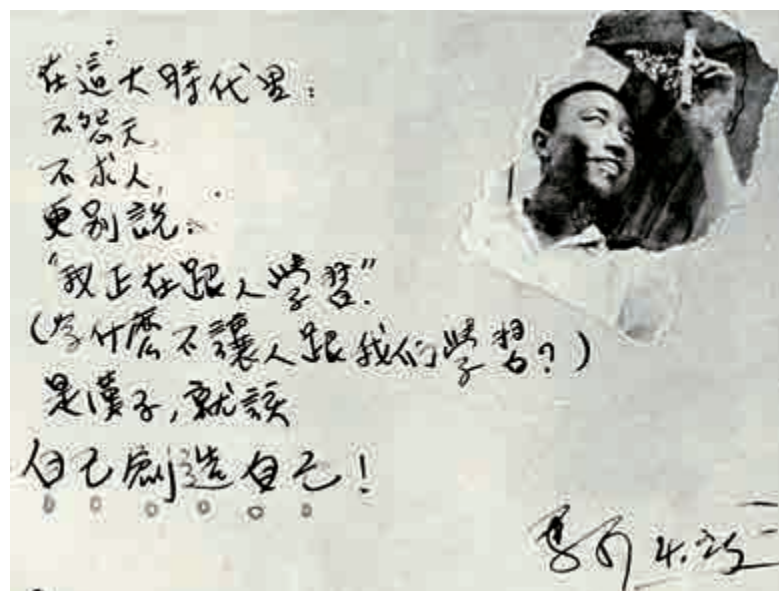 在這大時代里：
不怨天，
不求人，
更别說：
“我正在跟人學習”.
(為什麼不讓人跟我们學習？)
是漢子，就該
自己創造自己！
4.25